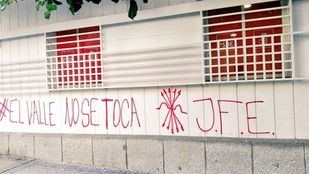 #EL VALLE NO SE TOCA J.F.E.